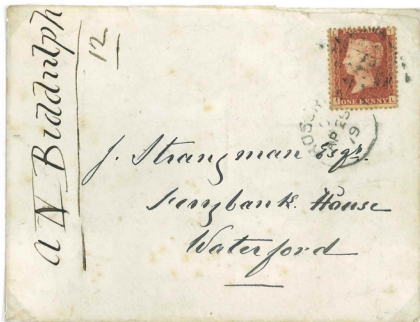 A N Biddulph
12
ONE PENNY
AP 25
79
J. Strangman Esqr.
Ferrybank House
Waterford